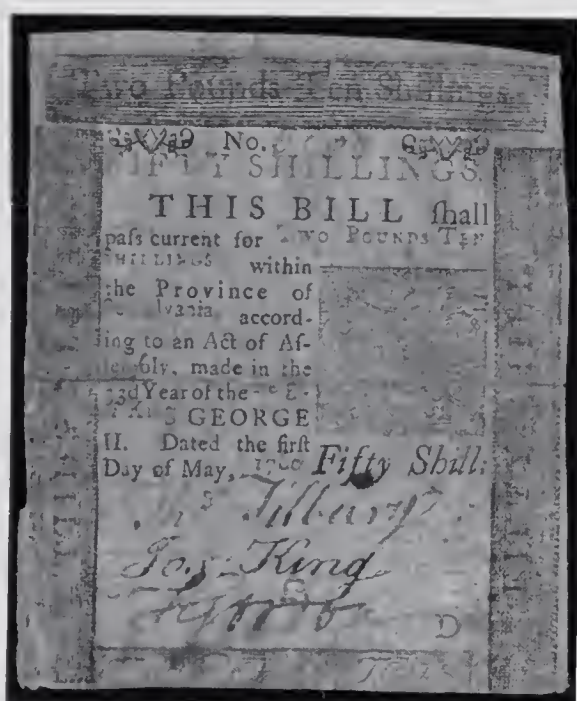 Two Pounds Ten Shillings.
No.
FIFTY SHILLINGS.
THIS BILL ſhall
paſs current for TWO POUNDS TEN
SHILLINGS within
the Province of
accord-
ing to an Act of Aſ-
ſembly, made in the
33d Year of the
GEORGE
II. Dated the firſt
Day of May, 1760 Fifty Shill:
Tilbury
Jos. King
D